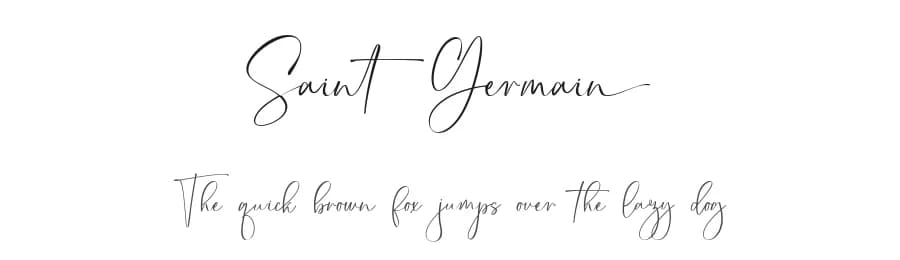 Saint Germain
The quick brown fox jumps over the lazy dog